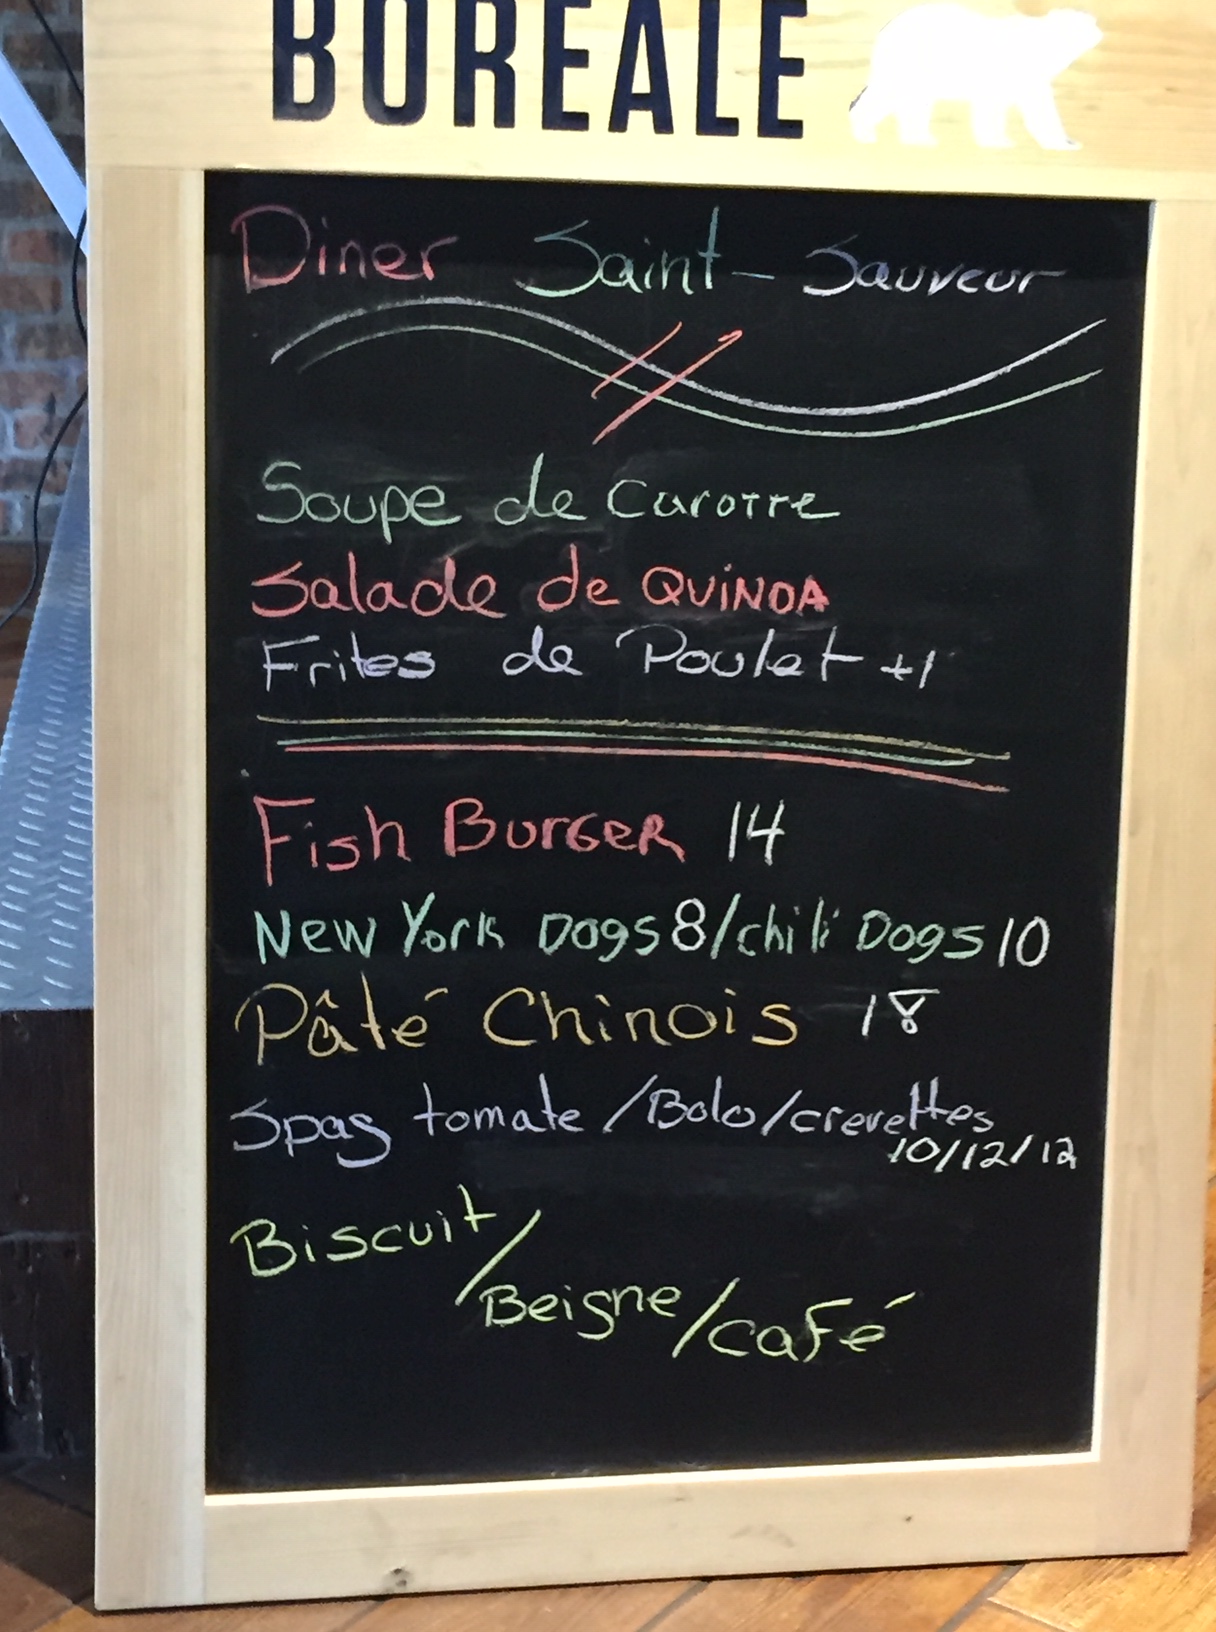 BOREALE
Diner Saint-Sauveur
Soupe de Carotte
Salade de QUiNOA
Frites de Poulet +1
Fish BurGeR 14
New York Dogs 8/chili Dogs 10
Pâté Chinois 18
Spag tomate /Bolo/crevettes
10/12/12
Biscuit/
Beigne/caFé